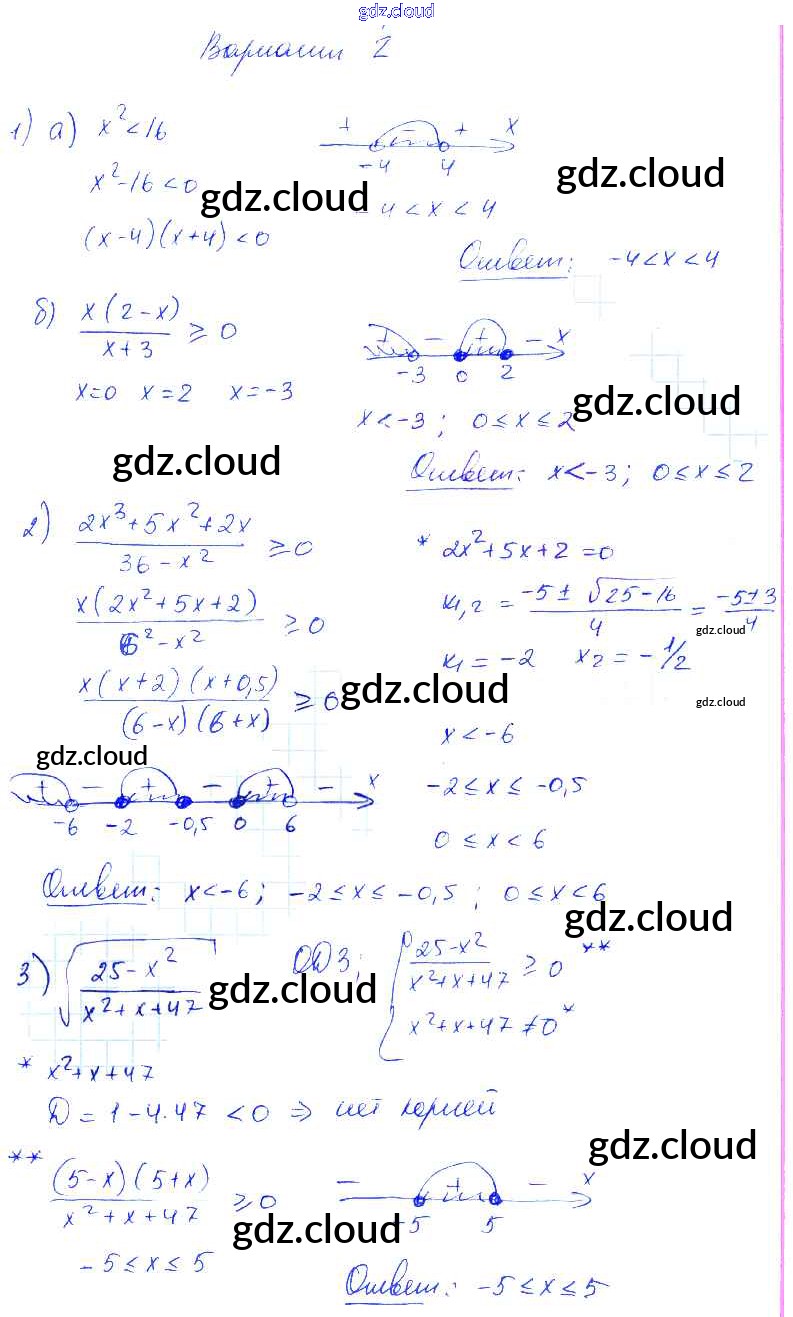 gdz.cloud
Вариант 2
1) а) x² < 16
x² - 16 < 0
(x - 4)(x + 4) < 0
+ - + x
-4 4
-4 < x < 4
gdz.cloud
gdz.cloud
Ответ: -4 < x < 4
б) x(2 - x) / x + 3 ≥ 0
x = 0 x = 2 x = -3
+ - + - x
-3 0 2
x < -3; 0 ≤ x ≤ 2
gdz.cloud
gdz.cloud
Ответ: x < -3; 0 ≤ x ≤ 2
2) 2x³ + 5x² + 2x / 36 - x² ≥ 0
x(2x² + 5x + 2) / 6² - x² ≥ 0
x(x + 2)(x + 0,5) / (6 - x)(6 + x) ≥ 0
* 2x² + 5x + 2 = 0
x₁,₂ = -5 ± √25 - 16 / 4 = -5 ± 3 / 4
gdz.cloud
x₁ = -2 x₂ = -1/2
gdz.cloud
gdz.cloud
x < -6
-2 ≤ x ≤ -0,5
0 ≤ x < 6
gdz.cloud
+ - + - + - x
-6 -2 -0,5 0 6
Ответ: x < -6; -2 ≤ x ≤ -0,5; 0 ≤ x < 6
gdz.cloud
3) √25 - x² / x² + x + 47
gdz.cloud
ОДЗ: { 25 - x² / x² + x + 47 ≥ 0 **
x² + x + 47 ≠ 0 *
* x² + x + 47
D = 1 - 4·47 < 0 ⇒ нет корней
gdz.cloud
** (5 - x)(5 + x) / x² + x + 47 ≥ 0
- + - x
-5 5
gdz.cloud
-5 ≤ x ≤ 5
Ответ: -5 ≤ x ≤ 5